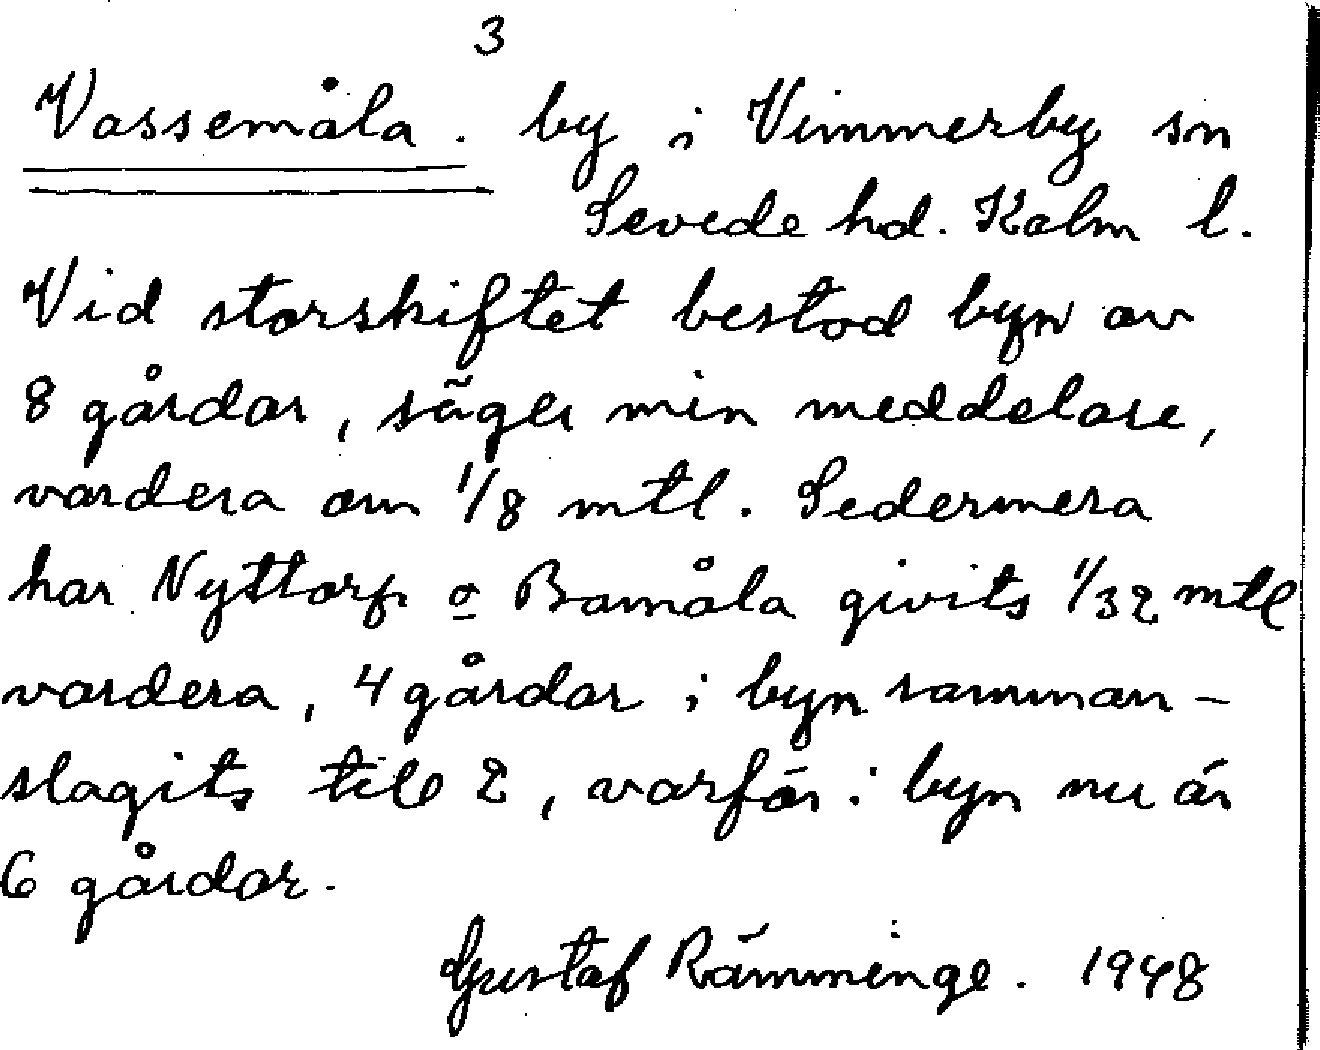 3
Vassemåla. by i Vimmerby sn
Sevede hd. Kalm l.
Vid storskiftet bestod byn av
8 gårdar, säger min meddelare,
vardera om 1/8 mtl. Sedermera
har Nyttorp o Bamåla givits 1/32 mtl
vardera, 4 gårdar i byn samman-
slagits till 2, varför i byn nu är
6 gårdar.
Gustaf Rämminge. 1948